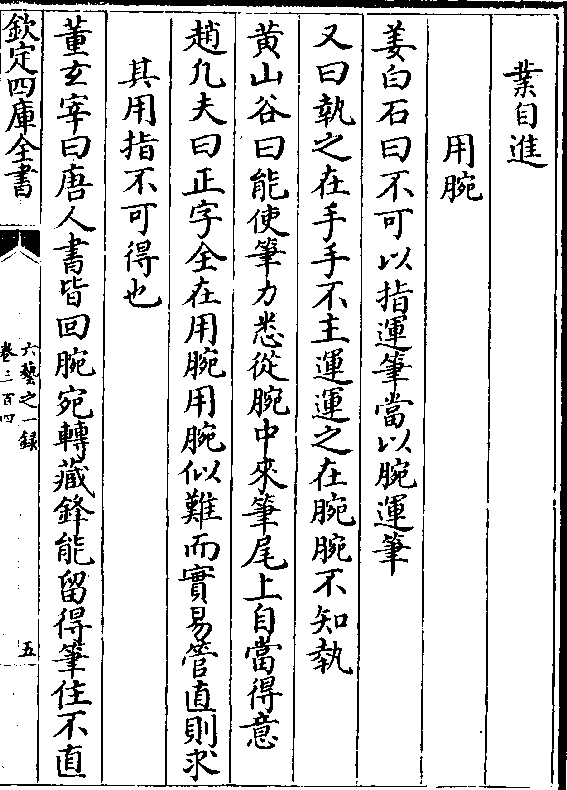 業自進
用腕
姜白石曰不可以指運筆當以腕運筆
又曰執之在手手不主運運之在腕腕不知執
黄山谷曰能使筆力悉從腕中來筆尾上自當得意
趙凡夫曰正字全在用腕用腕似難而實易管直則求
其用指不可得也
董玄宰曰唐人書皆回腕宛轉藏鋒能留得筆住不直
欽定四庫全書
六藝之一録
卷三百四
五